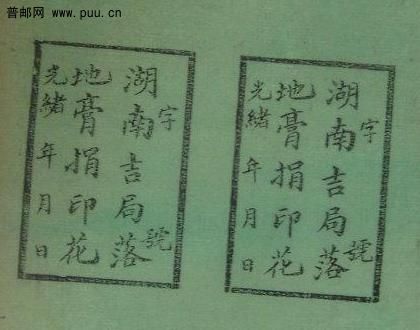 普邮网 www.puu.cn
字號
湖南吉局落
地膏捐印花
光緒年月日
字號
湖南吉局落
地膏捐印花
光緒年月日